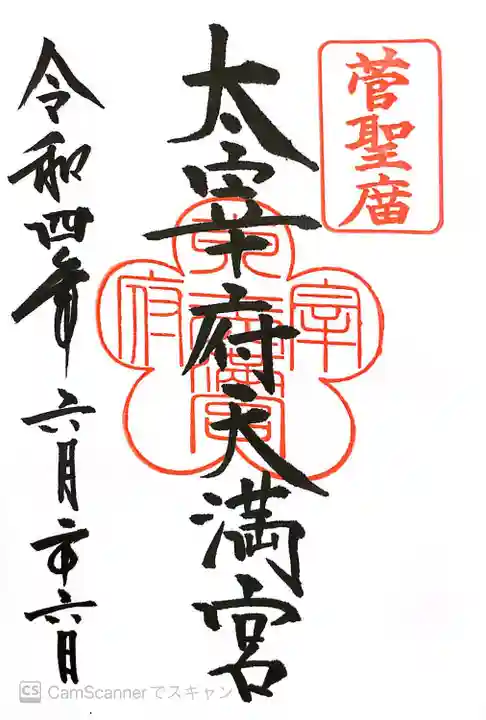 菅聖廟
太宰府天満宮
令和四年 六月二十六日
CamScannerでスキャン